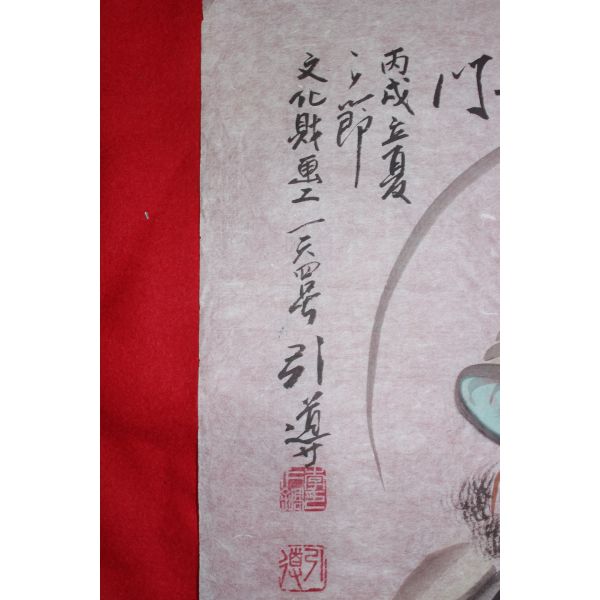 門
丙戌立夏
之節
文化財画工 一六四号 引導
引導